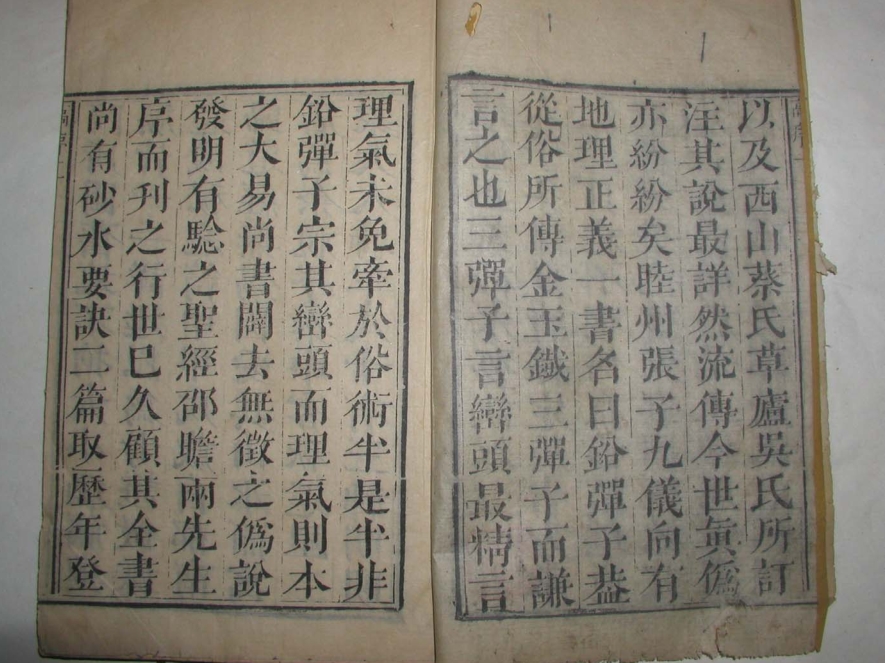 以及西山蔡氏草廬吳氏所訂
注其說最詳然流傳今世眞僞
亦紛紛矣睦州張子九儀向有
地理正義一書名曰鉛彈子葢
從俗所傳金玉鐵三彈子而謙
言之也三彈子言巒頭最精言
理氣未免牽於俗術半是半非
鉛彈子宗其巒頭而理氣則本
之大易尚書闢去無徵之僞說
發明有驗之聖經邵瞻兩先生
序而刋之行世已久顧其全書
尚有砂水要訣二篇取歷年登